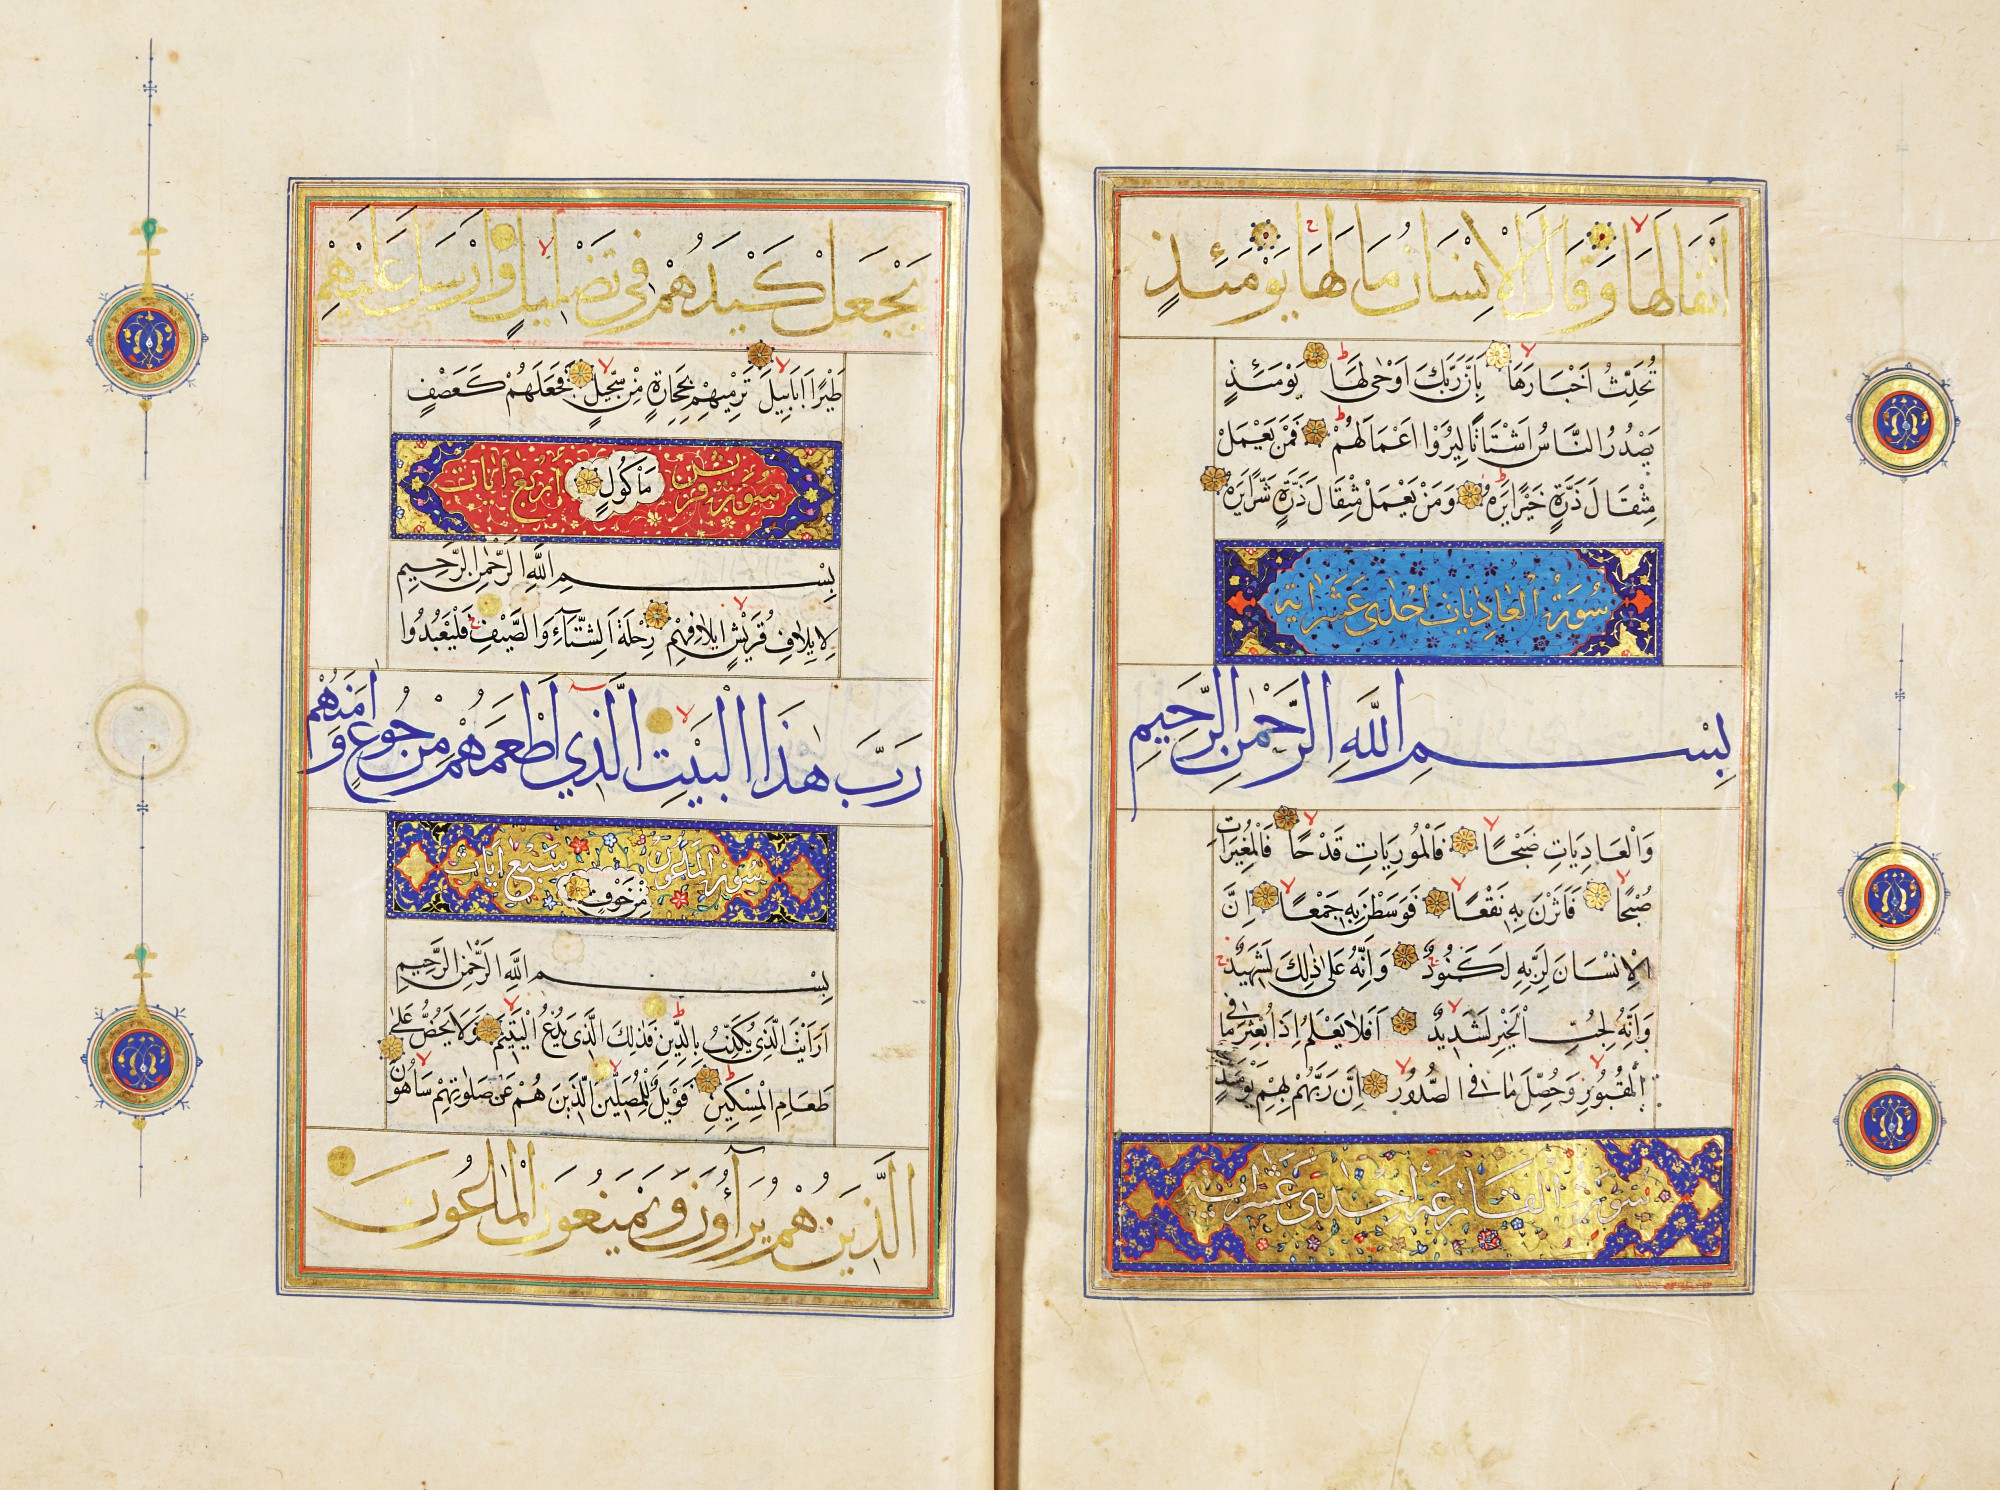 اَثْقَالَهَا وَقَالَ الْاِنْسَانُ مَا لَهَا يَوْمَئِذٍ
تُحَدِّثُ اَخْبَارَهَا بِاَنَّ رَبَّكَ اَوْحٰى لَهَا يَوْمَئِذٍ
يَصْدُرُ النَّاسُ اَشْتَاتًا لِيُرَوْا اَعْمَالَهُمْ فَمَنْ يَعْمَلْ
مِثْقَالَ ذَرَّةٍ خَيْرًا يَرَهُ وَمَنْ يَعْمَلْ مِثْقَالَ ذَرَّةٍ شَرًّا يَرَهُ
سُورَةُ الْعَادِيَاتِ اِحْدٰى عَشَرَ اٰيَة
بِسْمِ اللّٰهِ الرَّحْمٰنِ الرَّحِيمِ
وَالْعَادِيَاتِ ضَبْحًا فَالْمُورِيَاتِ قَدْحًا فَالْمُغِيرَاتِ
صُبْحًا فَاَثَرْنَ بِهِ نَقْعًا فَوَسَطْنَ بِهِ جَمْعًا اِنَّ
الْاِنْسَانَ لِرَبِّهِ لَكَنُودٌ وَاِنَّهُ عَلٰى ذٰلِكَ لَشَهِيدٌ
وَاِنَّهُ لِحُبِّ الْخَيْرِ لَشَدِيدٌ اَفَلَا يَعْلَمُ اِذَا بُعْثِرَ مَا فِى
الْقُبُورِ وَحُصِّلَ مَا فِى الصُّدُورِ اِنَّ رَبَّهُمْ بِهِمْ يَوْمَئِذٍ
سورة القارعة احدى عشر اية
يَجْعَلْ كَيْدَهُمْ فِى تَضْلِيلٍ وَاَرْسَلَ عَلَيْهِمْ
طَيْرًا اَبَابِيلَ تَرْمِيهِمْ بِحِجَارَةٍ مِنْ سِجِّيلٍ فَجَعَلَهُمْ كَعَصْفٍ
مَأْكُولٍ
سورة قريش اربع ايات
بِسْمِ اللّٰهِ الرَّحْمٰنِ الرَّحِيمِ
لِاِيلَافِ قُرَيْشٍ اِيلَافِهِمْ رِحْلَةَ الشِّتَاءِ وَالصَّيْفِ فَلْيَعْبُدُوا
رَبَّ هٰذَا الْبَيْتِ الَّذِى اَطْعَمَهُمْ مِنْ جُوعٍ وَاٰمَنَهُمْ
سورة الماعون سبع ايات
مِنْ خَوْفٍ
بِسْمِ اللّٰهِ الرَّحْمٰنِ الرَّحِيمِ
اَرَاَيْتَ الَّذِى يُكَذِّبُ بِالدِّينِ فَذٰلِكَ الَّذِى يَدُعُّ الْيَتِيمَ وَلَا يَحُضُّ عَلٰى
طَعَامِ الْمِسْكِينِ فَوَيْلٌ لِلْمُصَلِّينَ الَّذِينَ هُمْ عَنْ صَلَوتِهِمْ سَاهُونَ
الَّذِينَ هُمْ يُرَاؤُنَ وَيَمْنَعُونَ الْمَاعُونَ